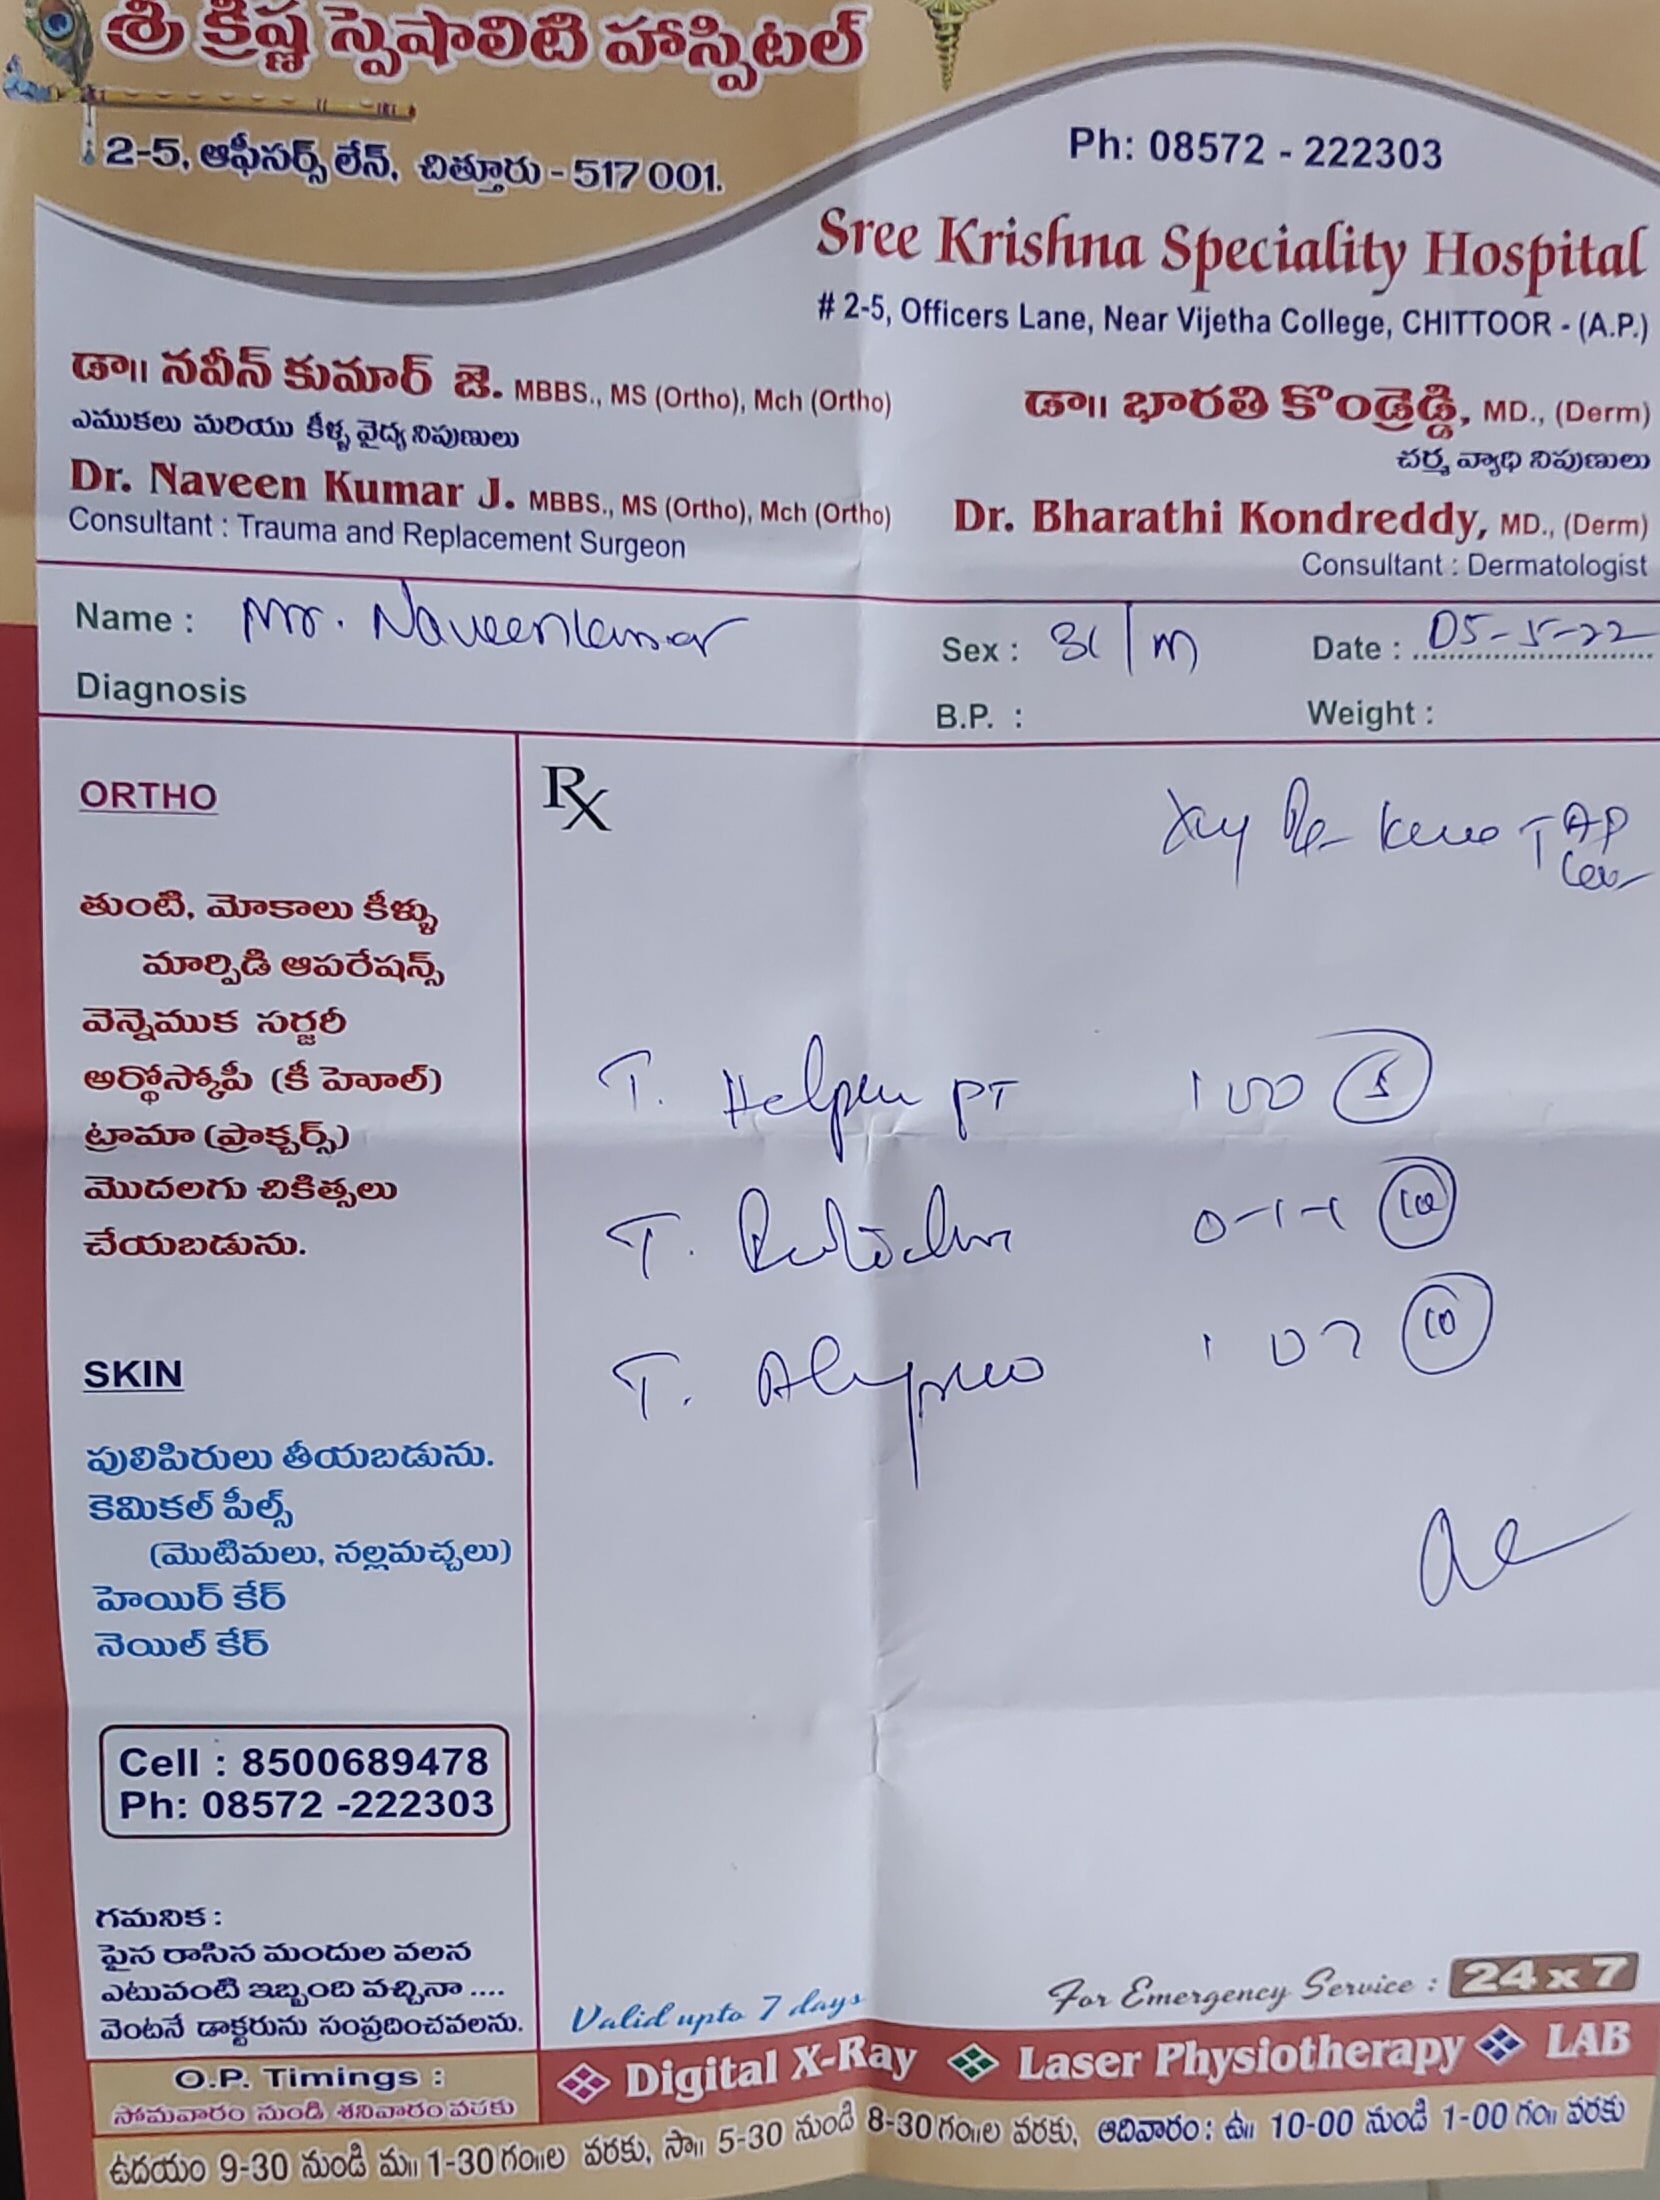 శ్రీ క్రిష్ణ స్పెషాలిటి హాస్పిటల్
2-5, ఆఫీసర్స్ లేన్, చిత్తూరు - 517 001.
Ph: 08572 - 222303
Sree Krishna Speciality Hospital
# 2-5, Officers Lane, Near Vijetha College, CHITTOOR - (A.P.)
డా॥ నవీన్ కుమార్ జె. MBBS., MS (Ortho), Mch (Ortho)
ఎముకలు మరియు కీళ్ళ వైద్య నిపుణులు
Dr. Naveen Kumar J. MBBS., MS (Ortho), Mch (Ortho)
Consultant : Trauma and Replacement Surgeon
డా॥ భారతి కొండ్రెడ్డి, MD., (Derm)
చర్మ వ్యాధి నిపుణులు
Dr. Bharathi Kondreddy, MD., (Derm)
Consultant : Dermatologist
Name : Mr. Naveenkumar
Sex : 31/M
Date : 05-5-22
Diagnosis
B.P. :
Weight :
ORTHO
తుంటి, మోకాలు కీళ్ళు
మార్పిడి ఆపరేషన్స్
వెన్నెముక సర్జరీ
ఆర్థోస్కోపీ (కీ హెూల్)
ట్రామా (ఫ్రాక్చర్స్)
మొదలగు చికిత్సలు
చేయబడును.
Rx
Knee AP
T. PT
T. 0-1-1 10
T. 10
SKIN
పులిపిరులు తీయబడును.
కెమికల్ పీల్స్
(మొటిమలు, నల్లమచ్చలు)
హెయిర్ కేర్
నెయిల్ కేర్
Cell : 8500689478
Ph: 08572 -222303
గమనిక :
పైన రాసిన మందుల వలన
ఎటువంటి ఇబ్బంది వచ్చినా ....
వెంటనే డాక్టరును సంప్రదించవలను.
Valid upto 7 days
For Emergency Service : 24 x 7
O.P. Timings :
సోమవారం నుండి శనివారం వరకు
Digital X-Ray Laser Physiotherapy LAB
ఉదయం 9-30 నుండి మ॥ 1-30 గం॥ల వరకు, సా॥ 5-30 నుండి 8-30 గం॥ల వరకు, ఆదివారం : ఉ॥ 10-00 నుండి 1-00 గం॥ వరకు